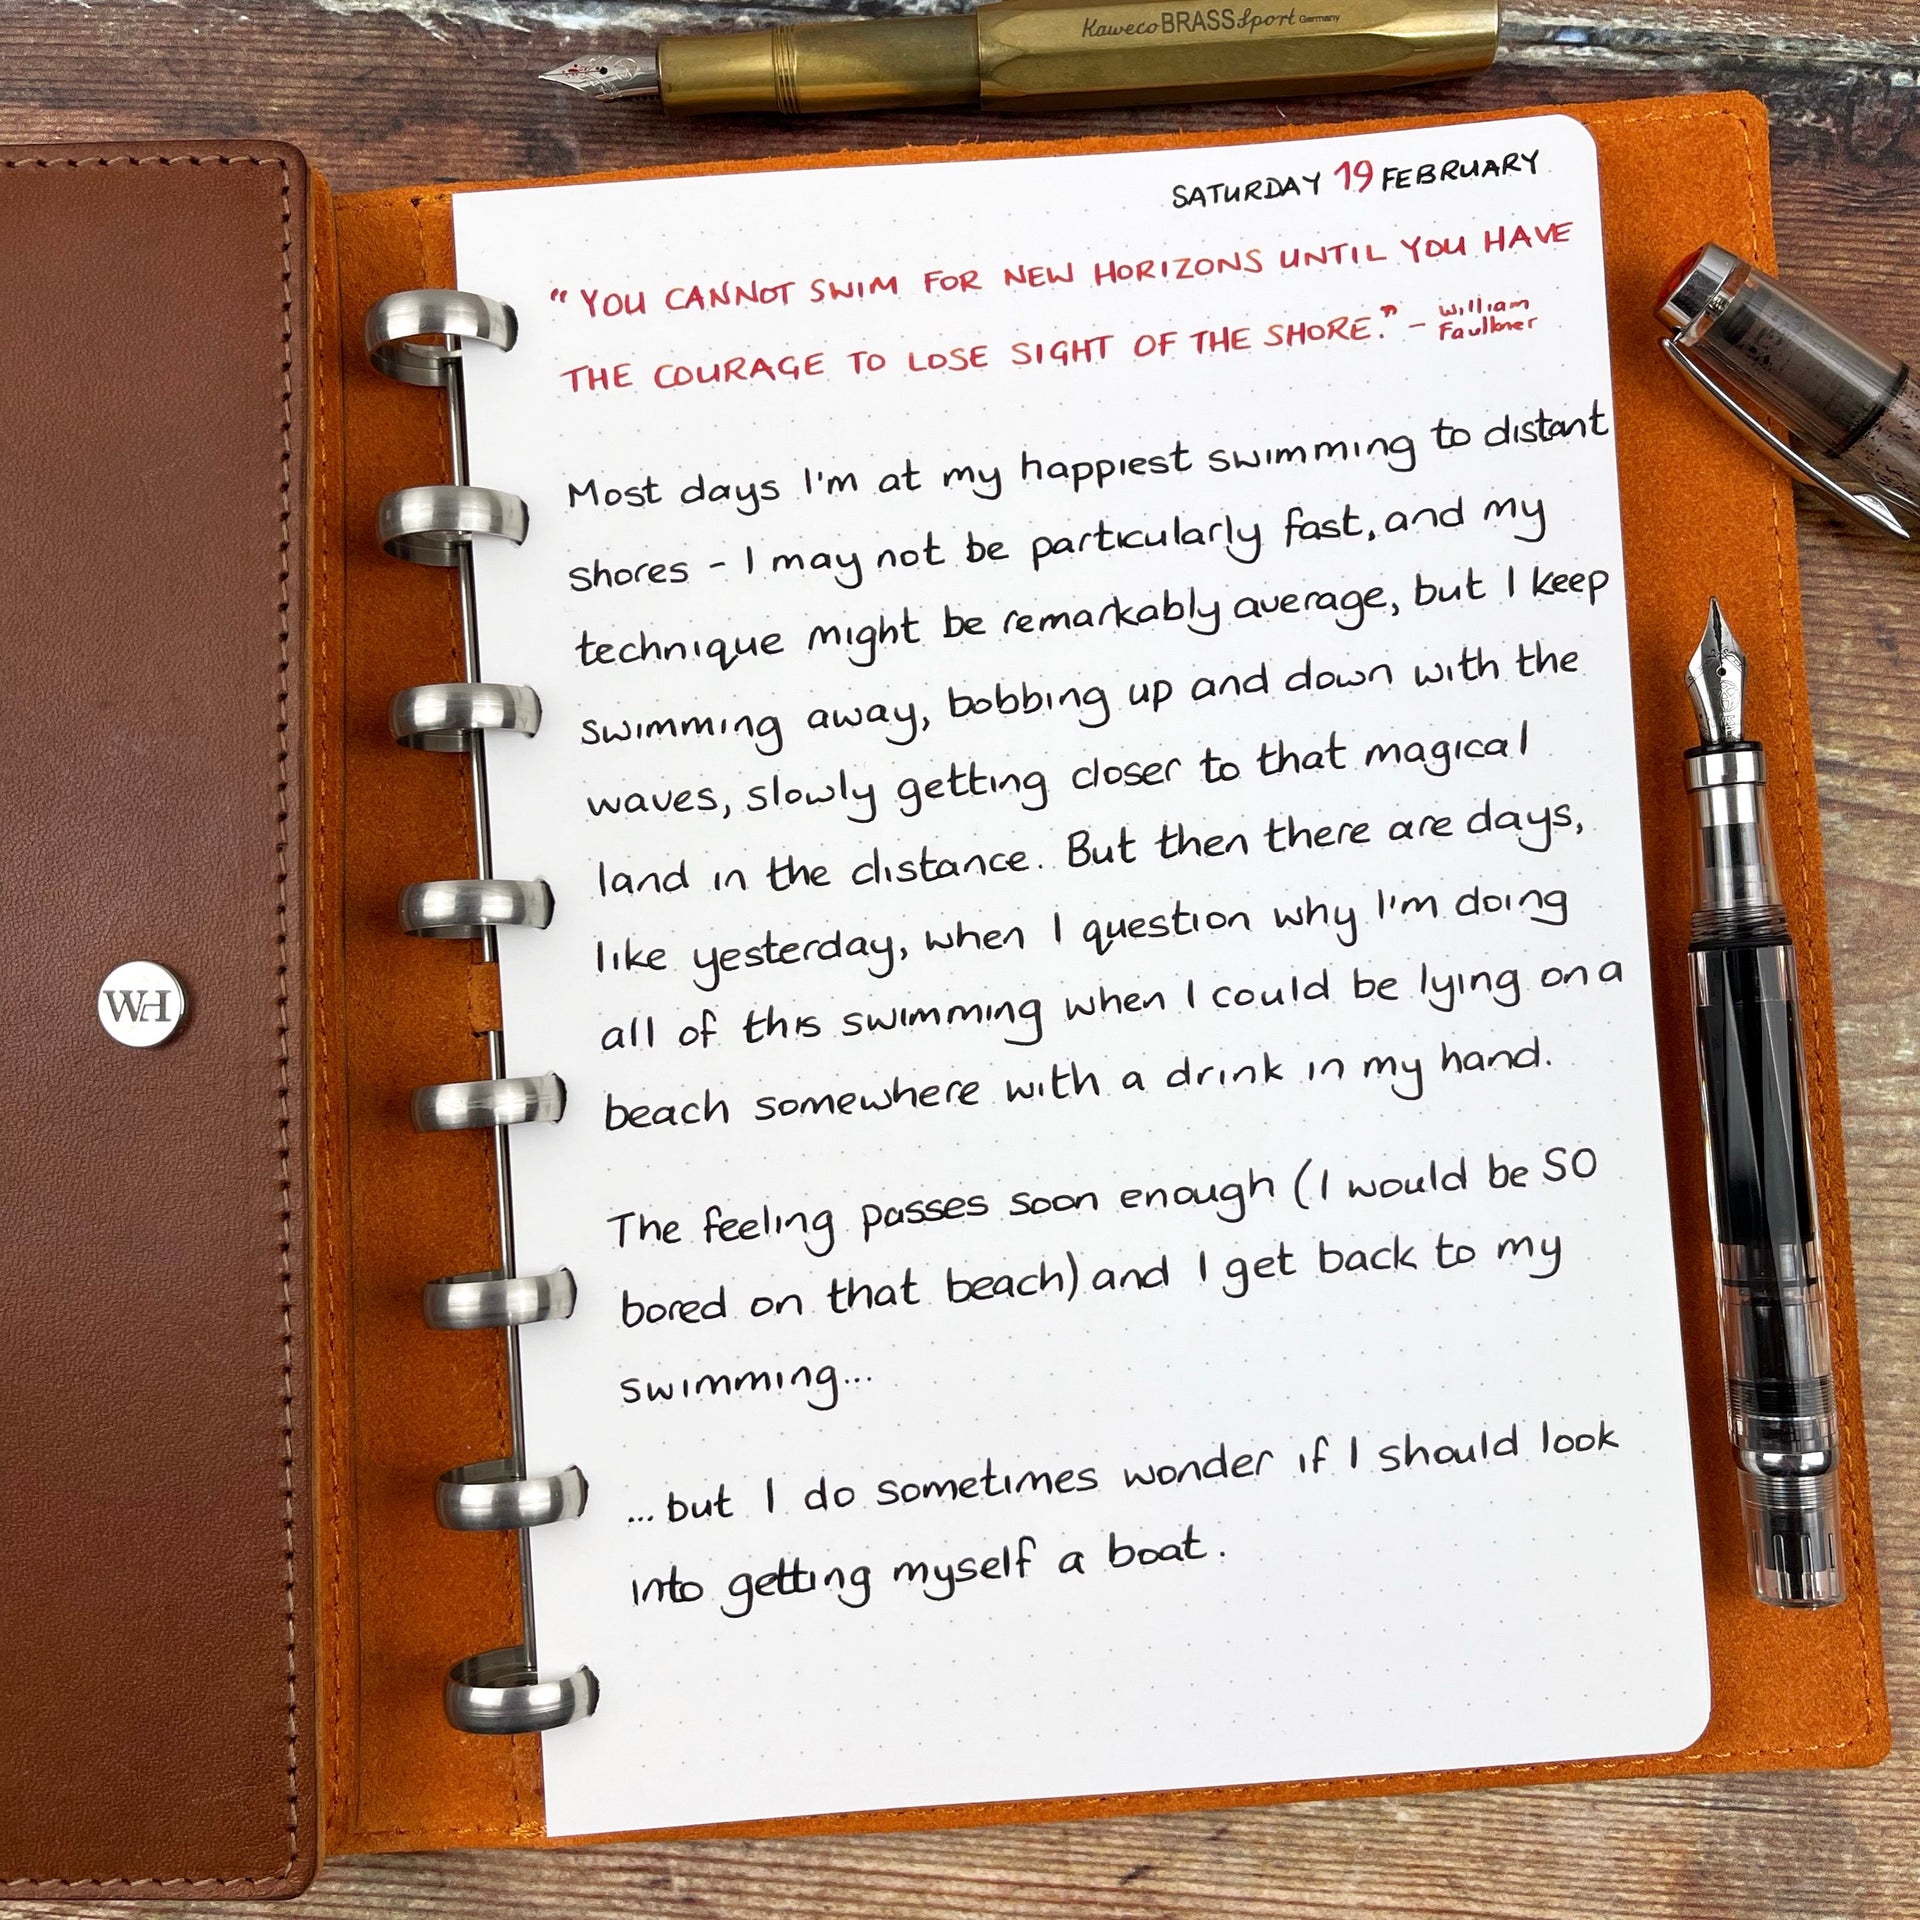 Kaweco BRASS Sport Germany
SATURDAY 19 FEBRUARY
"YOU CANNOT SWIM FOR NEW HORIZONS UNTIL YOU HAVE
THE COURAGE TO LOSE SIGHT OF THE SHORE." - William
Faulkner
Most days I'm at my happiest swimming to distant
shores - I may not be particularly fast, and my
technique might be remarkably average, but I keep
swimming away, bobbing up and down with the
waves, slowly getting closer to that magical
land in the distance. But then there are days,
like yesterday, when I question why I'm doing
all of this swimming when I could be lying on a
beach somewhere with a drink in my hand.
The feeling passes soon enough (I would be SO
bored on that beach) and I get back to my
swimming...
...but I do sometimes wonder if I should look
into getting myself a boat.
WH